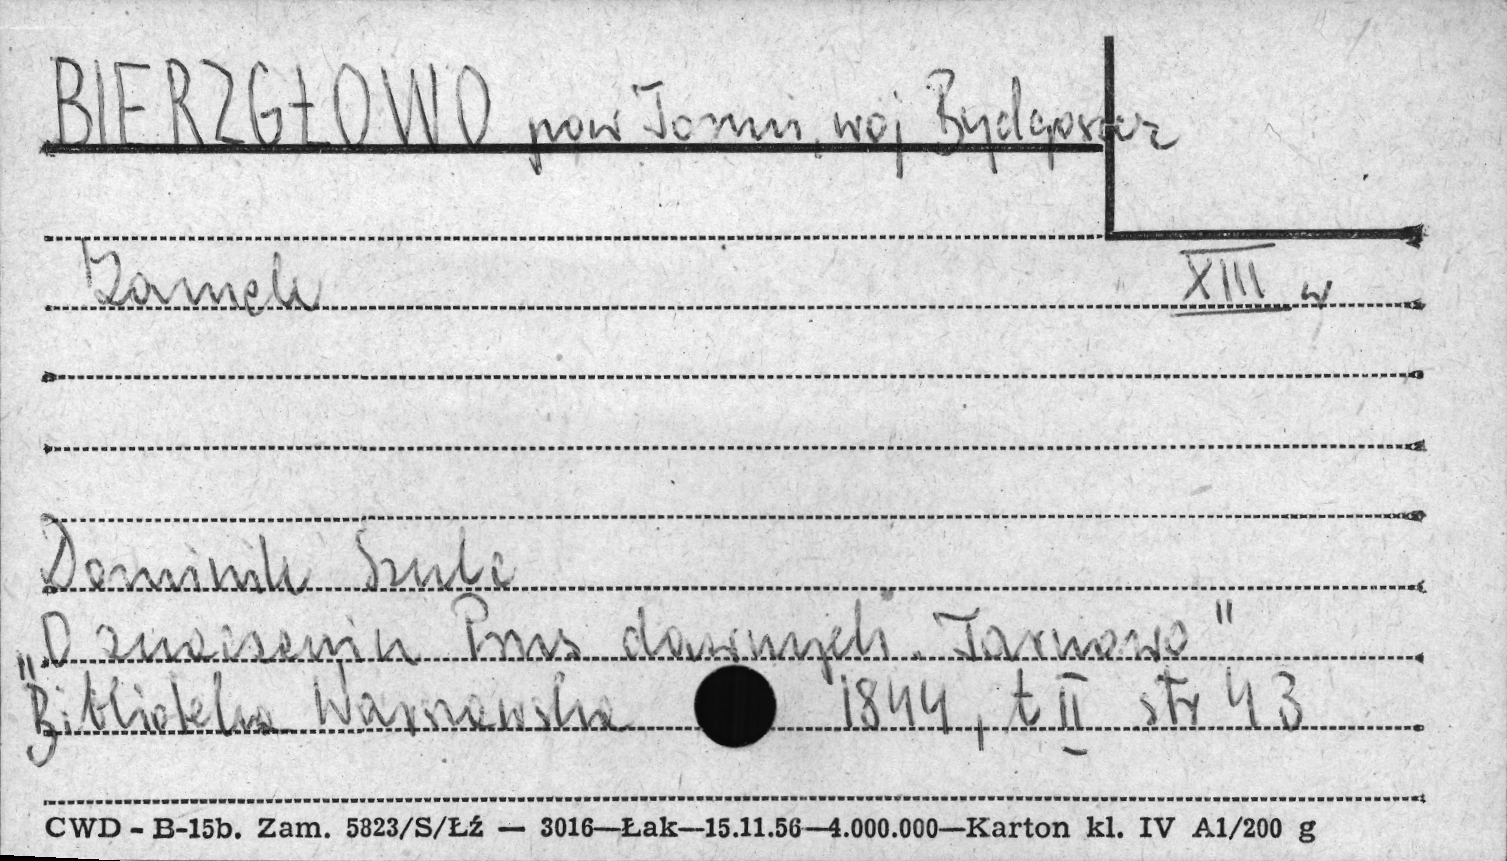 BIERZGŁOWO pow Toruń, woj Bydgoszcz
Zamek XIII w
Dominik Szulc
"O znaczeniu Prus dawnych. Tarnowo"
Biblioteka Warszawska 1844, t II str 43
CWD - B-15b. Zam. 5823/S/Łź — 3016—Łak—15.11.56—4.000.000—Karton kl. IV A1/200 g